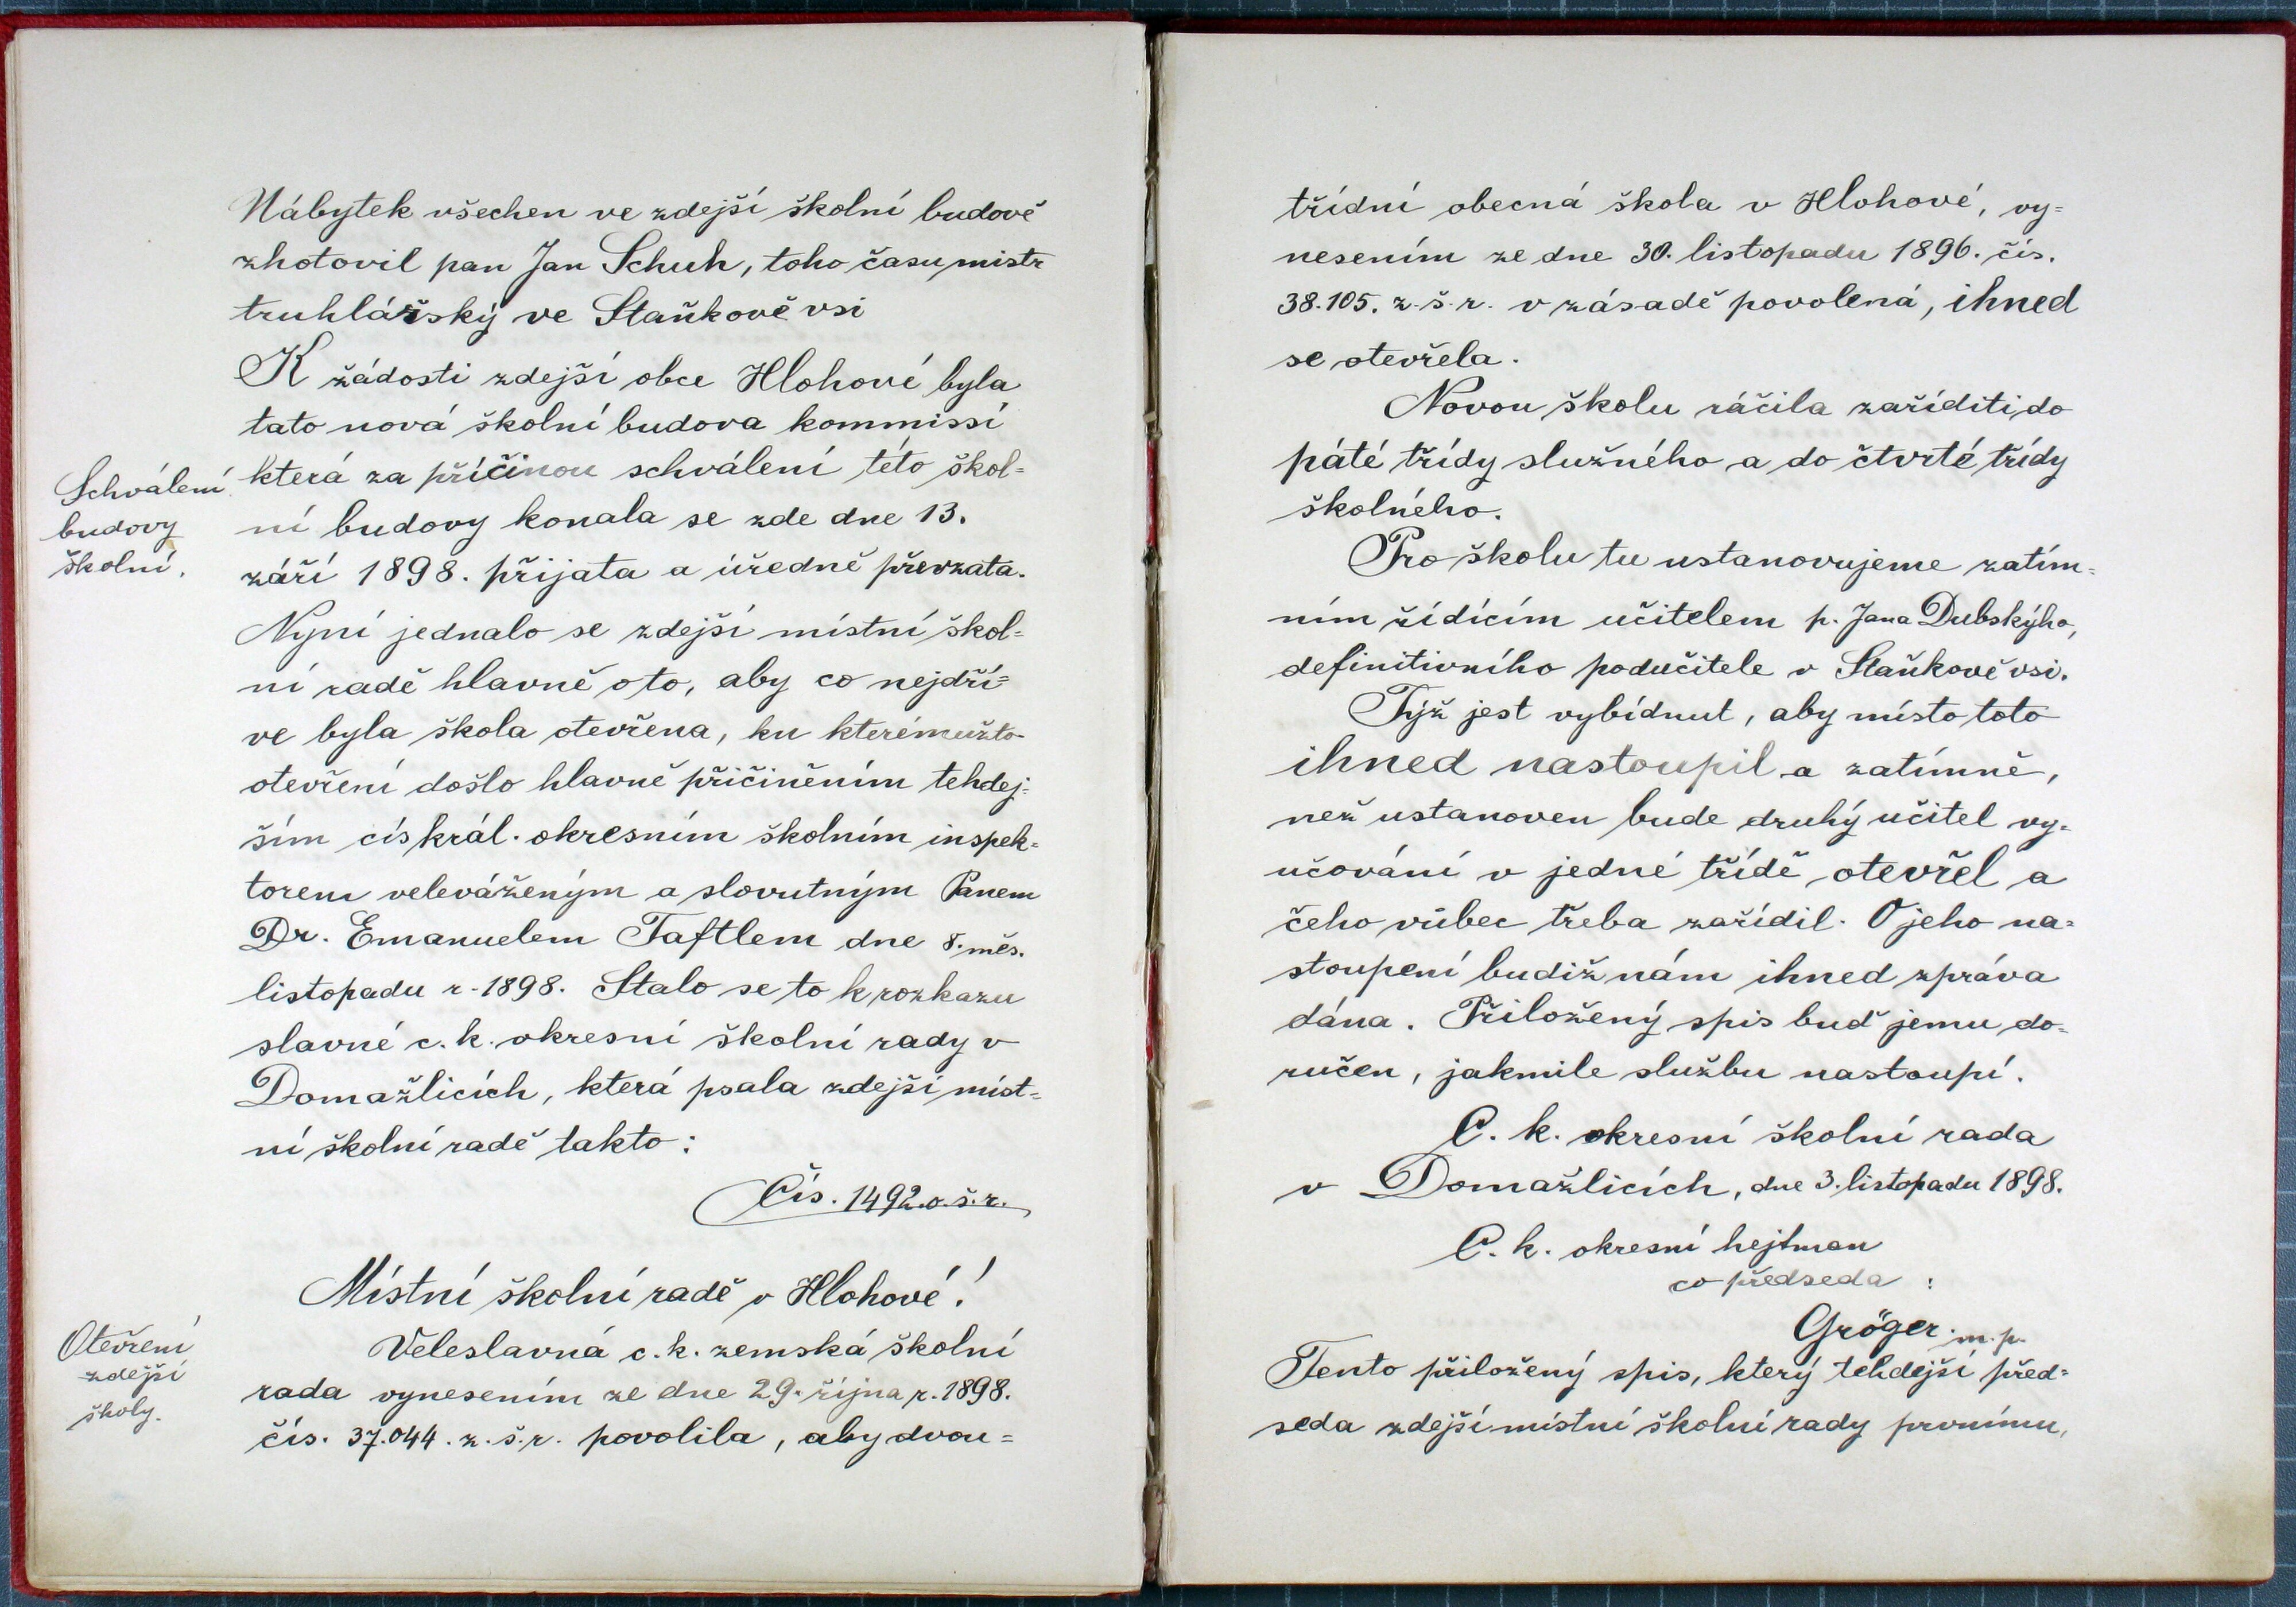 Nábytek všechen ve zdejší školní budově
zhotovil pan Jan Schuh, toho času mistr
truhlářský ve Staňkově vsi
K žádosti zdejší obce Hlohové byla
tato nová školní budova kommissí
Schválení
budovy
školní.
která za příčinou schválení této škol=
ní budovy konala se zde dne 13.
září 1898. přijata a úředně převzata.
Nyní jednalo se zdejší místní škol=
ní radě hlavně o to, aby co nejdří=
ve byla škola otevřena, ku kterémužto
otevření došlo hlavně přičiněním tehdej=
ším cís král. okresním školním inspek=
torem veleváženým a slovutným Panem
Dr. Emanuelem Taftlem dne 8. měs.
listopadu r. 1898. Stalo se to k rozkazu
slavné c. k. okresní školní rady v
Domažlicích, která psala zdejší míst=
ní školní radě takto:
Čís. 1492.o.š.r.
Místní školní radě v Hlohové!
Otevření
zdejší
školy.
Veleslavná c. k. zemská školní
rada vynesením ze dne 29. října r. 1898.
čís. 37.044. z. š. r. povolila, aby dvou=
třídní obecná škola v Hlohové, vy=
nesením ze dne 30. listopadu 1896. čís.
38.105. z. š. r. v zásadě povolená, ihned
se otevřela.
Novou školu ráčila zaříditi do
páté třídy služného a do čtvrté třídy
školného.
Pro školu tu ustanovujeme zatím=
ním řídícím učitelem p. Jana Dubskýho,
definitivního podučitele v Staňkově vsi.
Týž jest vybídnut, aby místo toto
ihned nastoupil a zatímně,
než ustanoven bude druhý učitel vy=
učování v jedné třídě otevřel a
čeho vůbec třeba zařídil. O jeho na=
stoupení budiž nám ihned zpráva
dána. Přiložený spis buď jemu do=
ručen, jakmile službu nastoupí.
C. k. okresní školní rada
v Domažlicích, dne 3. listopadu 1898.
C. k. okresní hejtman
co předseda :
Gröger m. p.
Tento přiložený spis, který tehdejší před=
seda zdejší místní školní rady prvnímu,